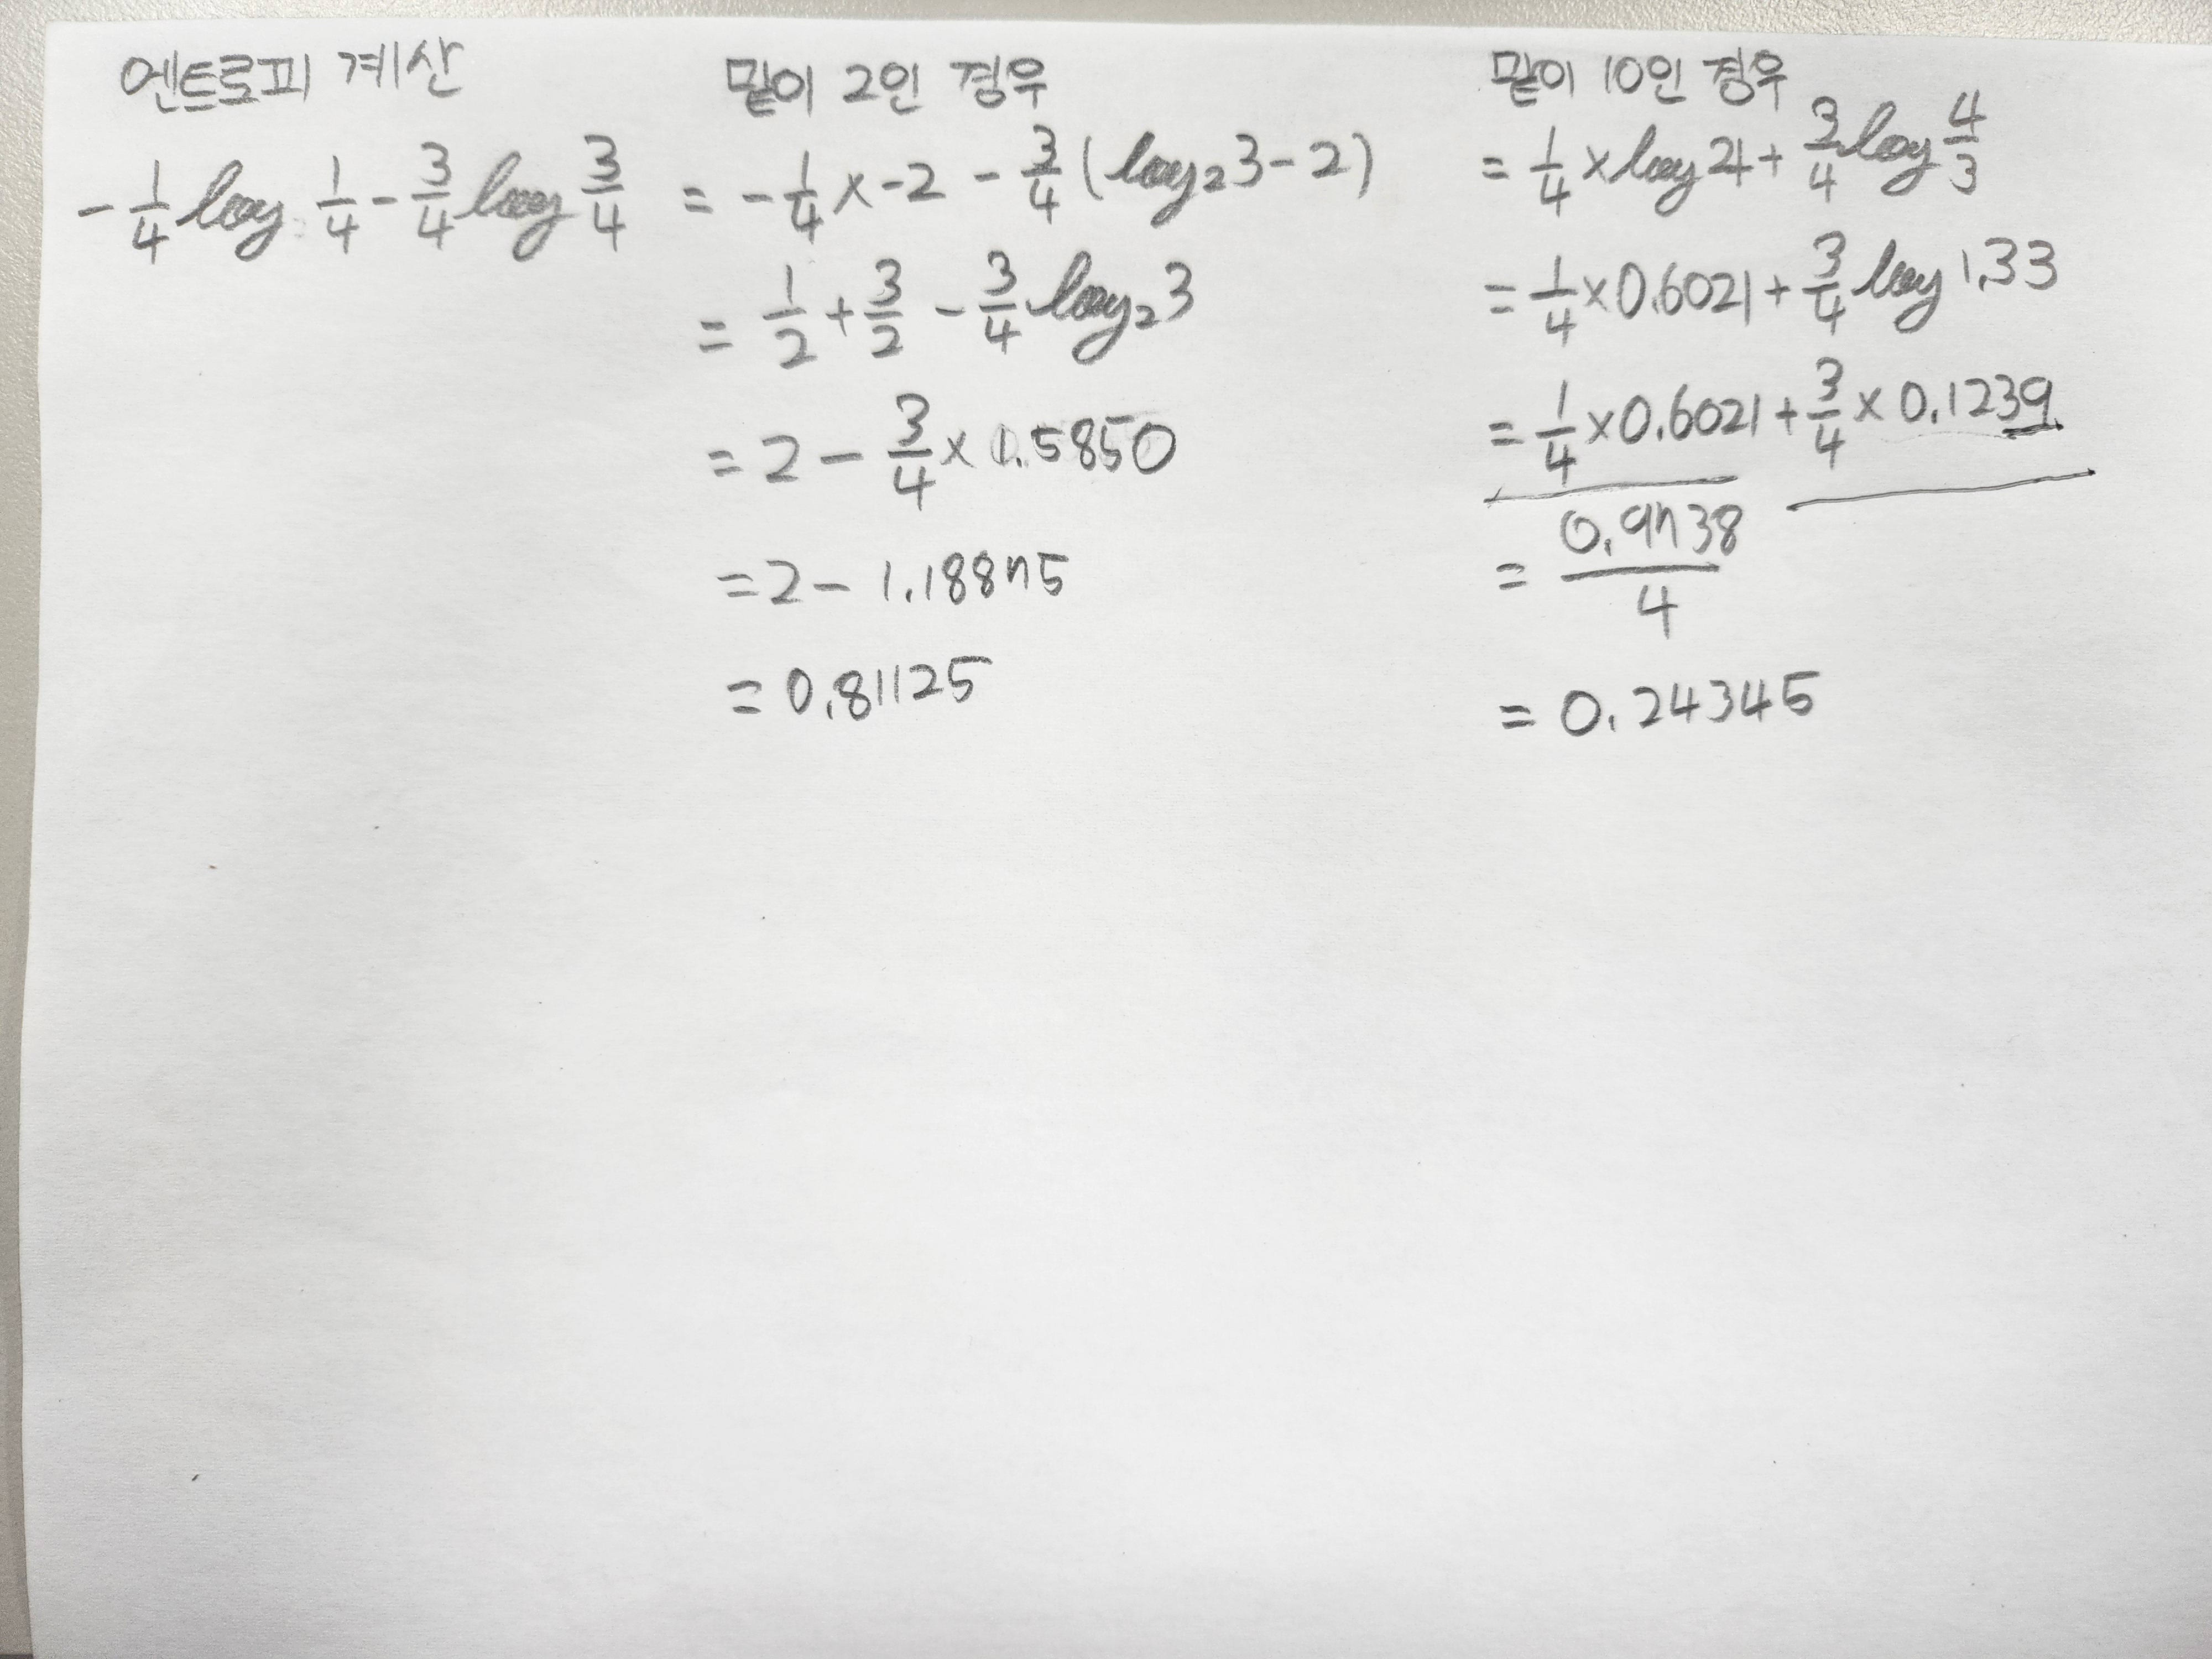 엔트로피 계산
-1/4 log 1/4 - 3/4 log 3/4
밑이 2인 경우
= -1/4 × -2 - 3/4 (log₂3 - 2)
= 1/2 + 3/2 - 3/4 log₂3
= 2 - 3/4 × 1.5850
= 2 - 1.18875
= 0.81125
밑이 10인 경우
= 1/4 × log 4 + 3/4 log 4/3
= 1/4 × 0.6021 + 3/4 log 1.33
= 1/4 × 0.6021 + 3/4 × 0.1239
= 0.9738/4
= 0.24345